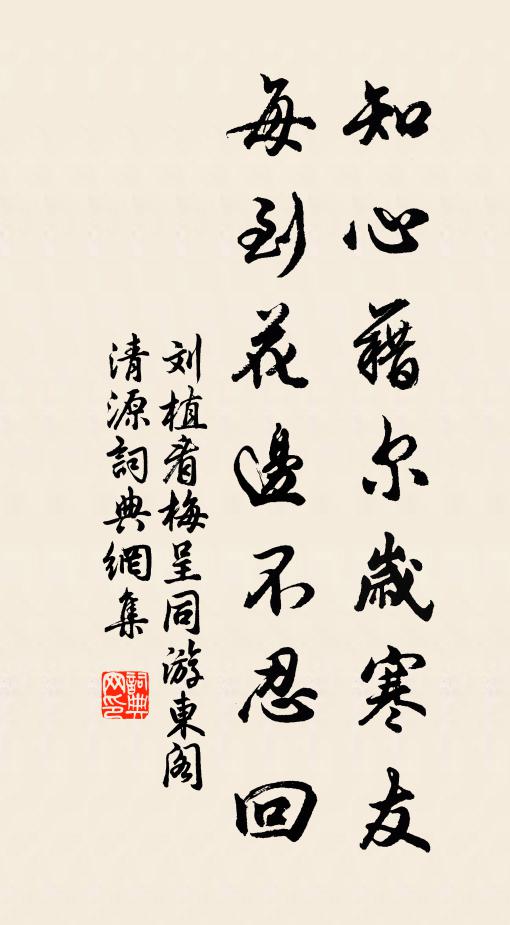 知心藉尔歲寒友
每到花邊不忍回
刘植看梅呈同游東阁
清源詞典網集
詞典网印